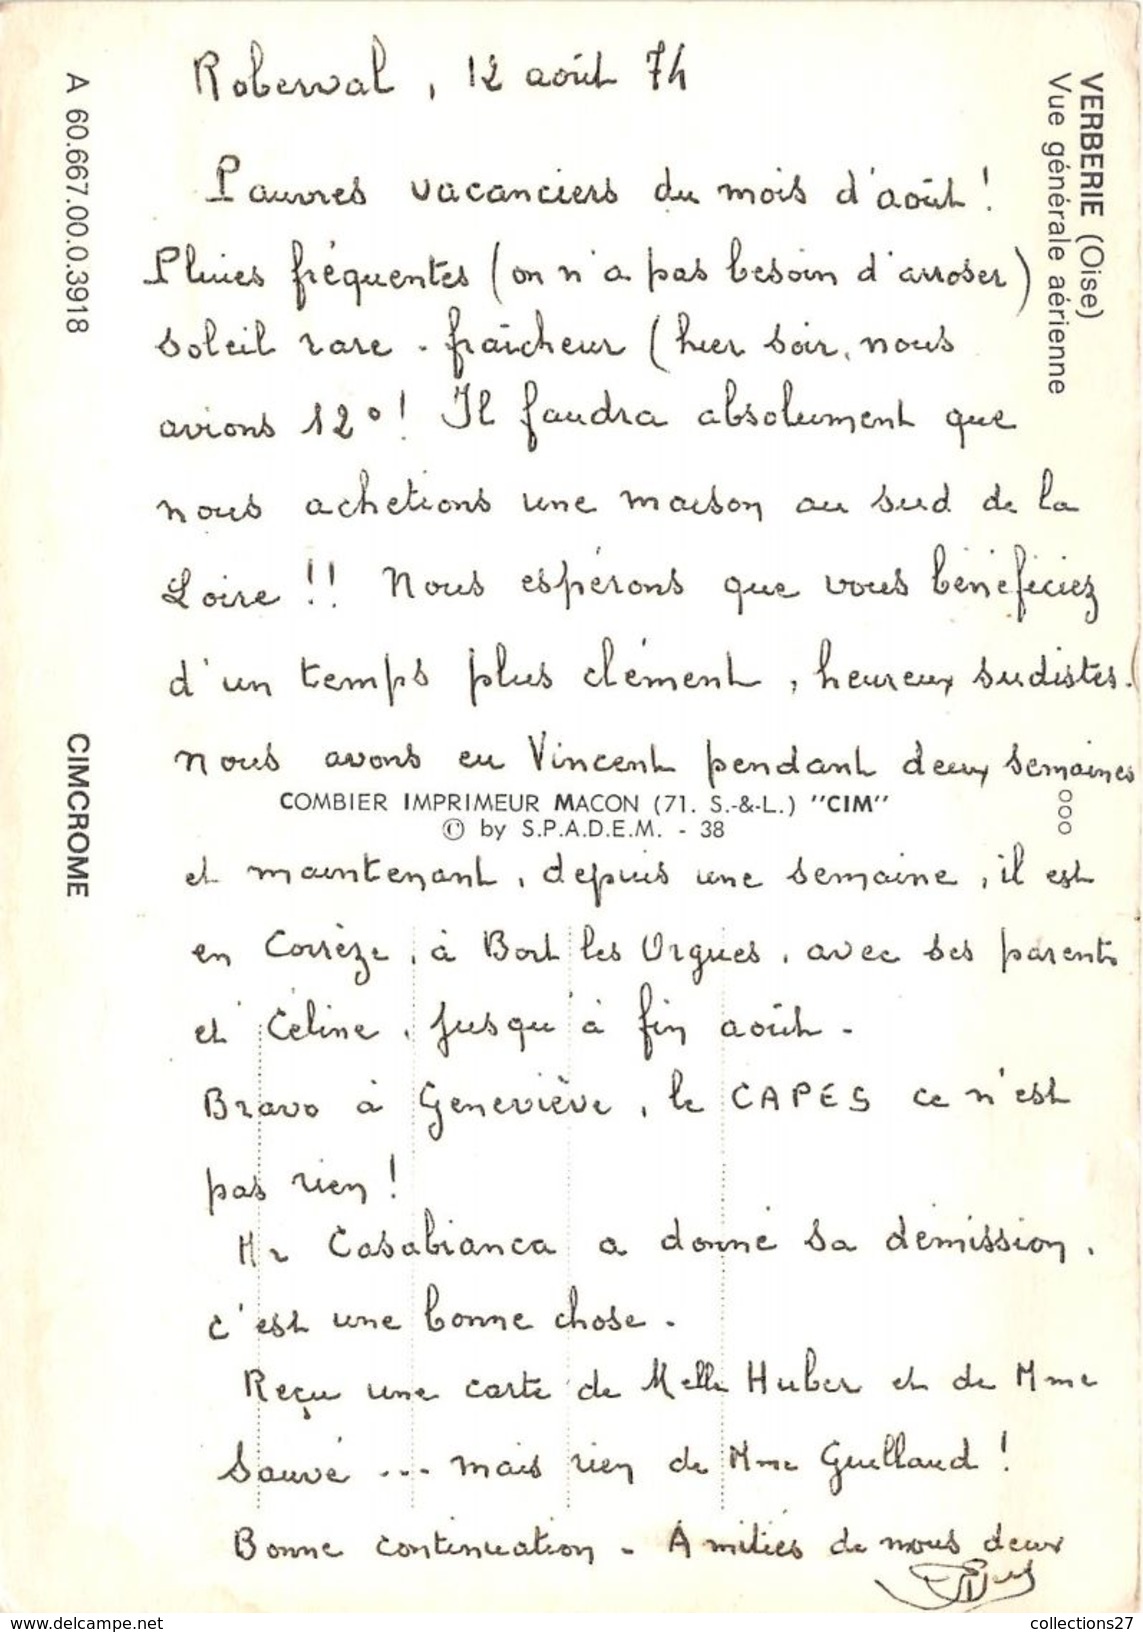 Roberval, 12 août 74
Pauvres vacanciers du mois d'août !
Pluies fréquentes (on n'a pas besoin d'arroser)
soleil rare - fraîcheur (hier soir, nous
avions 12° ! Il faudra absolument que
nous achetions une maison au sud de la
Loire !! Nous espérons que vous bénéficiez
d'un temps plus clément, heureux sudistes.
Nous avons eu Vincent pendant deux semaines
et maintenant, depuis une semaine, il est
en Corrèze, à Bort les Orgues, avec ses parents
et Céline, jusqu'à fin août -
Bravo à Geneviève, le CAPES ce n'est
pas rien !
Mr Casabianca a donné sa démission,
c'est une bonne chose.
Reçu une carte de Melle Huber et de Mme
Sauvé ... mais rien de Mme Guillaud !
Bonne continuation - Amitiés de nous deux
VERBERIE (Oise)
Vue générale aérienne
ooo
COMBIER IMPRIMEUR MACON (71. S.-&-L.) "CIM"
© by S.P.A.D.E.M. - 38
A 60.667.00.0.3918
CIMCROME
collections27